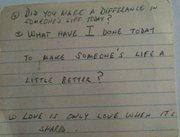 ② DID YOU MAKE A DIFFERENCE IN
SOMEONE'S LIFE TODAY?
③ WHAT HAVE I DONE TODAY
TO MAKE SOMEONE'S LIFE A
LITTLE BETTER?
LOVE IS ONLY LOVE WHEN IT'S
SHARED...